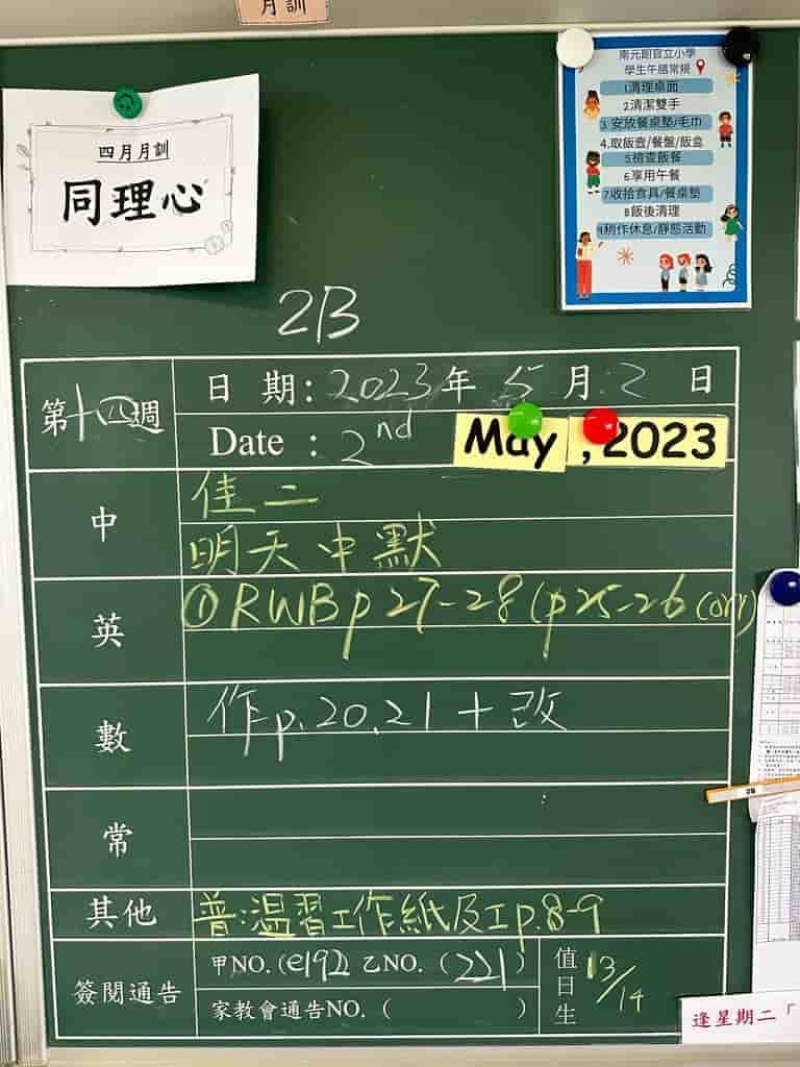 月訓
四月月訓
同理心
南元朗官立小學
學生午膳常規
1清理桌面
2清潔雙手
3.安放餐桌墊/毛巾
4.取飯壺/餐盤/飯盒
5檢查飯餐
6.享用午餐
7收拾食具/餐桌墊
8飯後清理
9稍作休息/靜態活動
2B
第十四週
日 期：2023年 5月 2 日
Date : 2nd May, 2023
中
佳二
明天中默
英
① RWB p 27-28 (p 25-26 (corr)
數
作p.20,21 + 改
常
其他
普:溫習工作紙及工p.8-9
簽閱通告
甲NO. (e192 乙NO. (221)
家教會通告NO. ( )
值日生
13/14
2B
逢星期二「